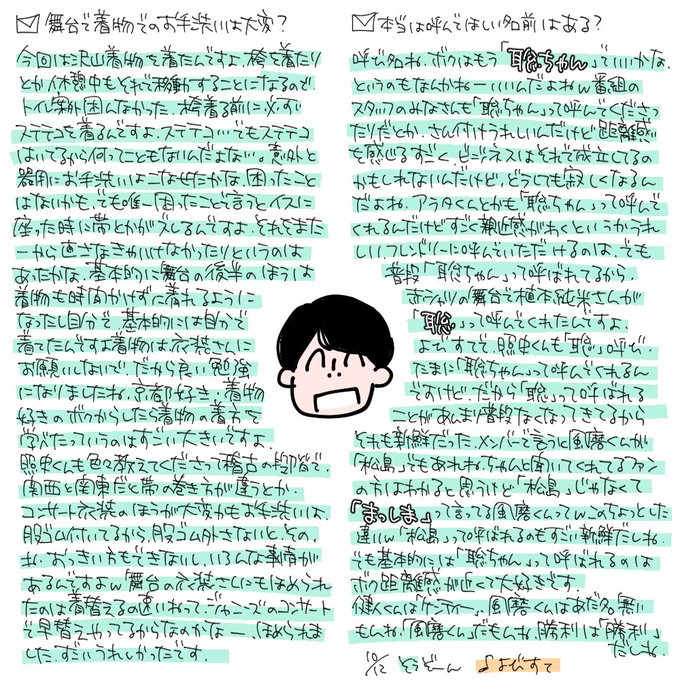 舞台で着物でのお手洗いは大変？
今回は沢山着物を着たんですよ。袴を着たり
とか休憩中もそれで移動することになるので、
トイレ案外困んなかった。袴着る前に必ず
ステテコを着るんですよ、ステテコ。でもステテコ
はいてるから何ってこともないんだよな…。意外と
器用にお手洗いはこなせたかな。困ったこと
はないかも。でも唯一困ったことを言うとイスに
座った時に帯とかがズレるんですよ。それをまた
一から直さなきゃいけなかったりというのは
あったかな。基本的に舞台の後半のほうは
着物も時間かけずに着れるように
なったし自分で。基本的には自分で
着てたんですよ着物は。衣装さんに
お願いしないで。だから良い勉強
になりましたね。京都好き、着物
好きのボクからしたら着物の着方を
学べたっていうのはすごい大きいですよ。
照史くんも色々教えてくださって稽古の段階で。
関西と関東だと帯の巻き方が違うとか。
コンサート衣装のほうが大変かもお手洗いは。
股ゴム付いてるから、股ゴム外さないと、その、
ね、おっきい方もできないし、いろんな事情が
あるですよw舞台の衣装さんにもほめられ
たのは着替えるの速いねって。ジャニーズのコンサート
で早替えやってるからなのかなー、ほめられま
した。すごいうれしかったです。
本当は呼んでほしい名前はある？
呼び名ね。ボクはもう「聡ちゃん」っていいかな。
というのもなんかねーいいんだよねw番組の
スタッフのみなさんも「聡ちゃん」って呼んでくださっ
たりだとか。さん付けうれしいんだけど距離感
を感じるすごく。ビジネスはそれで成立してるの
かもしれないんだけど、どうしても寂しくなるん
だよね。アラタくんとかも「聡ちゃん」って呼んで
くれるんだけどすごく親近感がわくというかうれ
しいフレンドリーに呼んでいただけるのは。でも
普段「聡ちゃん」って呼ばれてるから。
赤シャツの舞台で植本純米さんが
「聡」って呼んでくれたんですよ。
よびすてで。照史くんも「聡」呼び。
たまに「聡ちゃん」って呼んでくれるん
ですけど。だから「聡」って呼ばれる
ことがあんまり普段なくなってきてるから
それも新鮮だった。メンバーで言うと風磨くんが
「松島」でもあれね、ちゃんと聞いてくれてるファン
の方はわかると思うけど「松島」じゃなくて
「まっしま」って言ってる風磨くんってwこのちょっとした
違いw「松島」って呼ばれるのもすごい新鮮だしね。
でも基本的には「聡ちゃん」って呼ばれるのは
ボク距離感が近くて大好きです。
健人くんは「ケンティー」、風磨くんはあだ名無い
もんね。「風磨くん」だもんね。勝利は「勝利」
だしね。
10/12 そうどーん ♪よびすて